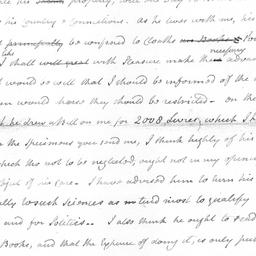 his country & connections. As he lives with me, his
principally be confined to Cloaths
like I shall with Pleasure make the necessary advan
would be well that I should be informed of the
would have they should be restricted. on the
he drew a Bill on me for 2008 Livres, which I
the Specimens you send me, I think highly of his
which tho not to be neglected, ought not in my opinion
of his care. I have advised him to turn his
to such Sciences as tend most to qualify
and for Politics.. I also think he ought to read
Books, and that the Expence of doing it, is only